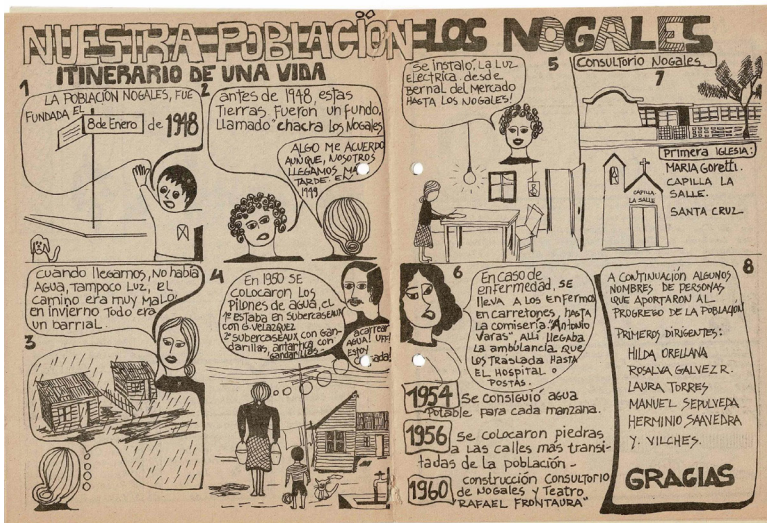 NUESTRA POBLACIÓN LOS NOGALES
ITINERARIO DE UNA VIDA
1
LA POBLACIÓN NOGALES, FUE
FUNDADA EL
8 de Enero
de 1948
2
antes de 1948, estas
Tierras. Fueron un fundo,
LLamado "chacra Los Nogales
ALGO ME ACUERDO
AUNQUE, NOSOTROS
LLEGAMOS, MA
TARDE. EN
1949
3
cuando llegamos, No había
AGUA, TAMPOCO LUZ, el
camino era muy MALO;
en invierno Todo era
un barrial.
4
En 1950 SE
COLOCARON LOS
PILONES DE AGUA, EL
1º ESTABA EN SUBERCASEAUX
CON G. VELAZQUEZ
2º SUBERCASEAUX CON GAN-
darillas, antartica con
Gandarillas
acarrear
AGUA! UFF!
ESTOY
5
Se instaló. LA LUZ
ELÉCTRICA. desde.
Bernal del Mercado
HASTA LOS NOGALES!
6
En caso de
enfermedad, SE
LLEVA A LOS ENFERMOS
EN CARRETONES, HASTA
LA COMISERÍA "ANTONIO
VARAS", ALLÍ LLEGABA
LA AMBULANCIA QUE
LOS TRASLADA HASTA
EL HOSPITAL O
POSTAS.
1954 Se consiguió agua
Potable para cada manzana.
1956 Se colocaron piedras
a Las calles más transi-
tadas de la población -
1960 construcción CONSULTORIO
de NOGALES y Teatro
"RAFAEL FRONTAURA"
7
Consultorio Nogales.
Primera IGLESIA:
MARIA Goretti.
CAPILLA LA
SALLE.
SANTA CRUZ
CAPILLA
LA SALLE
8
A CONTINUACIÓN ALGUNOS
NOMBRES DE PERSONAS
QUE APORTARON AL
PROGRESO DE LA POBLACIÓN
PRIMEROS DIRIGENTES:
HILDA ORELLANA
ROSALVA GALVEZ R.
LAURA TORRES
MANUEL SEPULVEDA
HERMINIO SAAVEDRA
Y. VILCHES.
GRACIAS